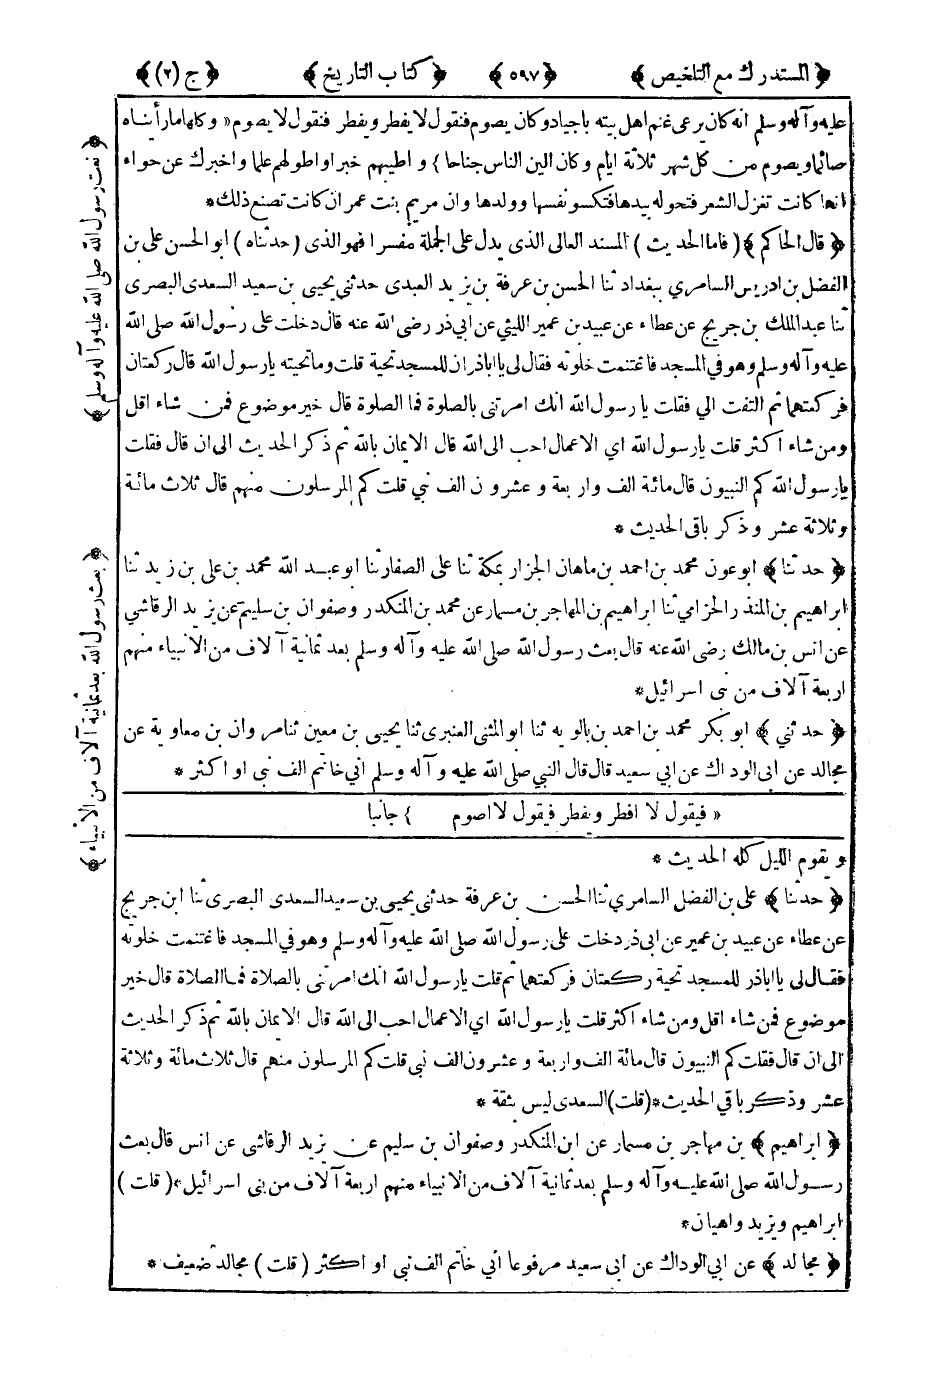 ﴿ المستدرك مع التلخيص ﴾ ﴿ ٥٩٧ ﴾ ﴿ كتاب التاريخ ﴾ ﴿ ج (٢) ﴾
عليه وآله وسلم انه كان يرعى غنم اهل بيته باجياد وكان يصوم فنقول لا يفطر ويفطر فنقول لا يصوم « وكلها ما رأيناه
صائما ويصوم من كل شهر ثلاثة ايام وكان الين الناس جناحا } و اطيبهم خبرا و اطولهم علما و اخبرك عن حواء
انها كانت تغزل الشعر فتحوله بيدها فتكسو نفسها وولدها وان مريم بنت عمران كانت تصنع ذلك *
﴿ قال الحاكم ﴾ ( فاما الحديث ) المسند العالى الذى يدل على الجملة مفسرا فهو الذى ( حدثناه ) ابو الحسن على بن
الفضل بن ادريس السامري ببغداد ثنا الحسن بن عرفة بن يزيد العبدى حدثني يحيى بن سعيد السعدى البصرى
ثنا عبد الملك بن جريج عن عطاء عن عبيد بن عمير الليثي عن ابي ذر رضى الله عنه قال دخلت على رسول الله صلى الله
عليه وآله وسلم وهو في المسجد فاغتنمت خلوته فقال لى يا اباذر ان للمسجد تحية قلت وما تحيته يا رسول الله قال ركعتان
فركعتهما ثم التفت الي فقلت يا رسول الله انك امرتنى بالصلوة فما الصلوة قال خير موضوع فمن شاء اقل
ومن شاء اكثر قلت يا رسول الله اي الاعمال احب الى الله قال الايمان بالله ثم ذكر الحديث الى ان قال فقلت
يا رسول الله كم النبيون قال مائة الف واربعة وعشرون الف نبي قلت كم المرسلون منهم قال ثلاث مائة
وثلاثة عشر وذكر باقى الحديث *
﴿ حدثنا ﴾ ابو عون محمد بن احمد بن ماهان الجزار بمكة ثنا على الصفار ثنا ابو عبد الله محمد بن على بن زيد ثنا
ابراهيم بن المنذر الحزامي ثنا ابراهيم بن المهاجر بن مسمار عن محمد بن المنكدر وصفوان بن سليم عن يزيد الرقاشي
عن انس بن مالك رضى الله عنه قال بعث رسول الله صلى الله عليه وآله وسلم بعد ثمانية آلاف من الانبياء منهم
اربعة آلاف من نبى اسرائيل *
﴿ حدثني ﴾ ابو بكر محمد بن احمد بن بالويه ثنا ابو المثنى العنبرى ثنا يحيى بن معين ثنا مروان بن معاوية عن
مجالد عن ابى الوداك عن ابي سعيد قال قال النبي صلى الله عليه وآله وسلم اني خاتم الف نبى او اكثر *
« فيقول لا افطر ويفطر فيقول لا اصوم } جانبا
ويقوم الليل كله الحديث *
﴿ حدثنا ﴾ على بن الفضل السامري ثنا الحسن بن عرفة حدثني يحيى بن سعيد السعدى البصرى ثنا ابن جريج
عن عطاء عن عبيد بن عمير عن ابى ذر دخلت على رسول الله صلى الله عليه وآله وسلم وهو في المسجد فاغتنمت خلوته
فقال لى يا اباذر للمسجد تحية ركعتان فركعتهما ثم قلت يا رسول الله انك امرتنى بالصلاة فما الصلاة قال خير
موضوع فمن شاء اقل ومن شاء اكثر قلت يا رسول الله اي الاعمال احب الى الله قال الايمان بالله ثم ذكر الحديث
الى ان قال فقلت كم النبيون قال مائة الف واربعة وعشرون الف نبي قلت كم المرسلون منهم قال ثلاث مائة وثلاثة
عشر وذكر باقي الحديث * (قلت) السعدى ليس بثقة *
﴿ ابراهيم ﴾ بن مهاجر بن مسمار عن ابن المنكدر وصفوان بن سليم عن يزيد الرقاشى عن انس قال بعث
رسول الله صلى الله عليه وآله وسلم بعد ثمانية آلاف من الانبياء منهم اربعة آلاف من بنى اسرائيل * ( قلت )
ابراهيم ويزيد واهيان *
﴿ مجالد ﴾ عن ابي الوداك عن ابى سعيد مرفوعا اني خاتم الف نبى او اكثر ( قلت ) مجالد ضعيف *
﴿ نعت رسول الله صلى الله عليه وآله وسلم ﴾
﴿ بعث رسول الله بعد ثمانية آلاف من الانبياء ﴾